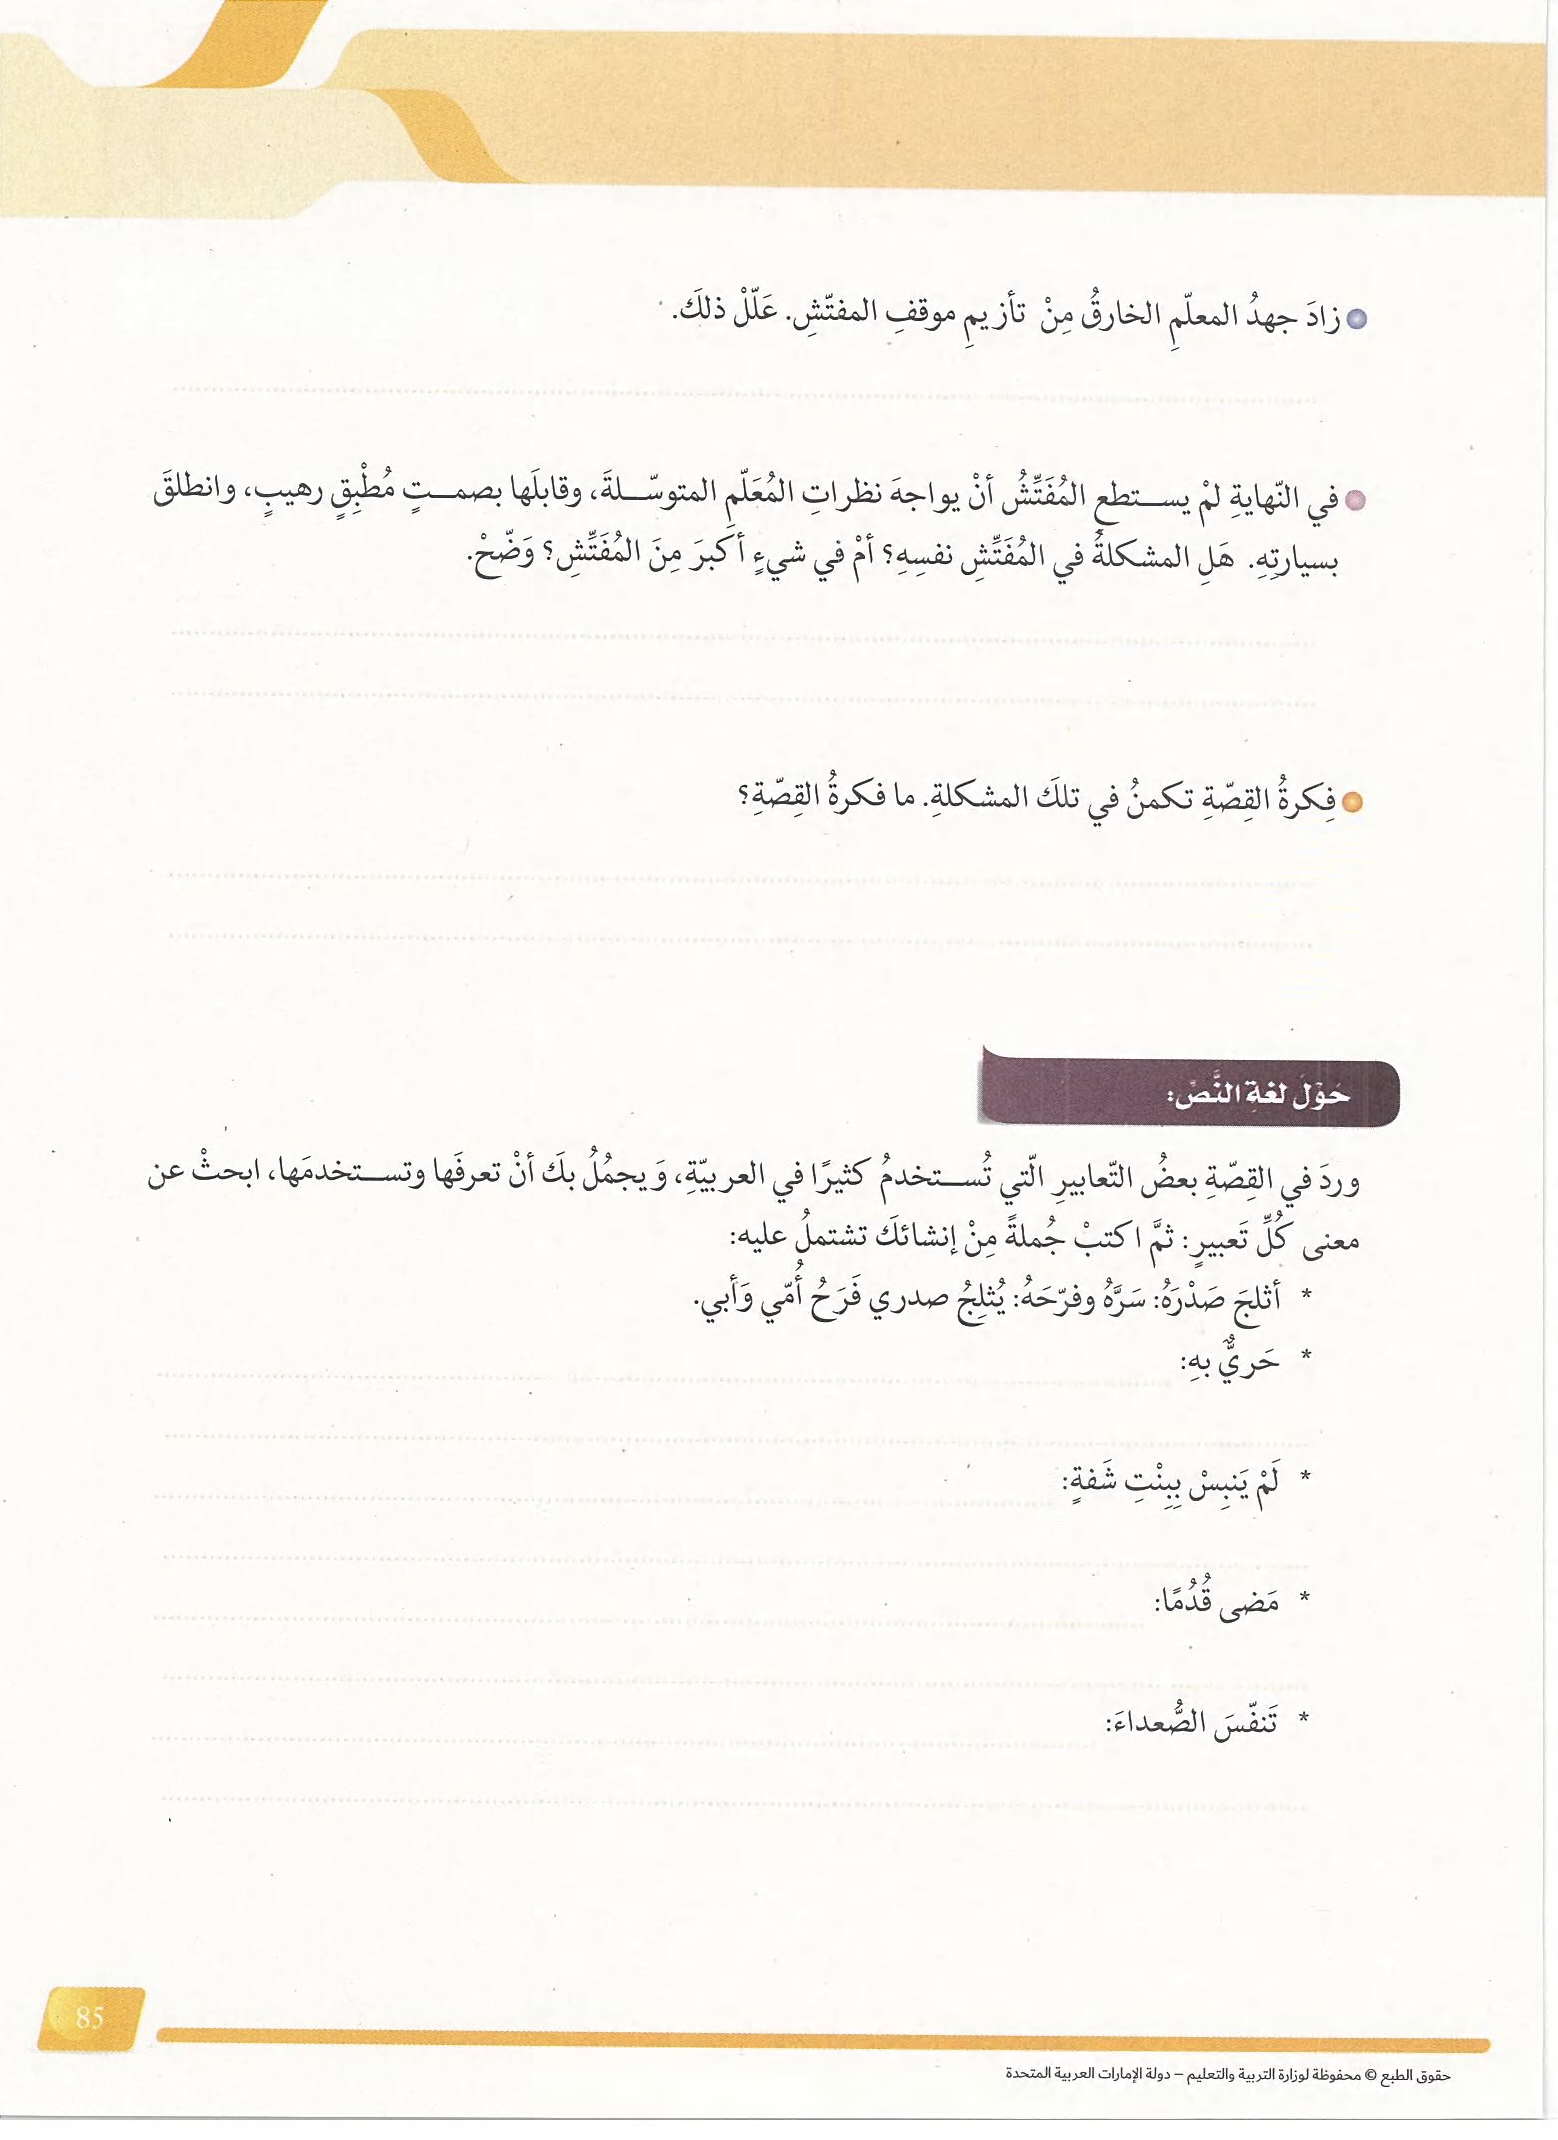 زادَ جهدُ المعلّمِ الخارقُ مِنْ تأزيمِ موقفِ المفتّشِ. عَلّلْ ذلكَ.
في النّهايةِ لمْ يستطعِ المُفَتِّشُ أنْ يواجهَ نظراتِ المُعَلّمِ المتوسّلةَ، وقابلَها بصمتٍ مُطْبِقٍ رهيبٍ، وانطلقَ
بسيارتِهِ. هَلِ المشكلةُ في المُفَتِّشِ نفسِهِ؟ أمْ في شيءٍ أكبرَ مِنَ المُفَتِّشِ؟ وَضّحْ.
فِكرةُ القِصّةِ تكمنُ في تلكَ المشكلةِ. ما فكرةُ القِصّةِ؟
حَوْلَ لغةِ النَّصّ:
وردَ في القِصّةِ بعضُ التّعابيرِ الّتي تُستخدمُ كثيرًا في العربيّةِ، وَيجمُلُ بكَ أنْ تعرفَها وتستخدمَها، ابحثْ عن
معنى كُلِّ تَعبيرٍ: ثمَّ اكتبْ جُملةً مِنْ إنشائكَ تشتملُ عليه:
* أثلجَ صَدْرَهُ: سَرَّهُ وفرّحَهُ: يُثلِجُ صدري فَرَحُ أُمّي وَأبي.
* حَريٌّ بهِ:
* لَمْ يَنبِسْ بِبِنْتِ شَفةٍ:
* مَضى قُدُمًا:
* تَنفّسَ الصُّعداءَ:
85
حقوق الطبع © محفوظة لوزارة التربية والتعليم – دولة الإمارات العربية المتحدة